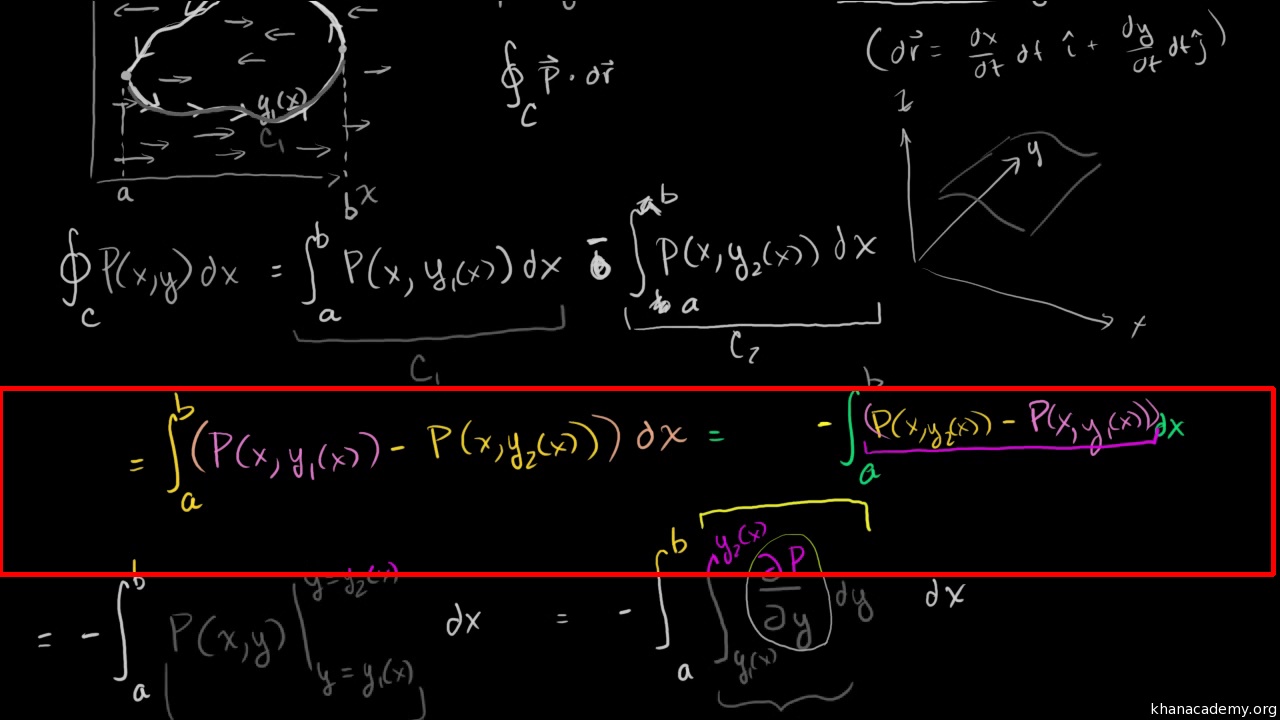 y₁(x)
C₁
a
b
x
∮_C P⃗ · dr⃗
(dr⃗ = dx/dt dt î + dy/dt dt ĵ)
z
y
x
∮_C P(x,y) dx = ∫_a^b P(x, y₁(x)) dx − ∫_a^b P(x, y₂(x)) dx
C₁
C₂
= ∫_a^b (P(x, y₁(x)) − P(x, y₂(x))) dx = − ∫_a^b (P(x,y₂(x)) − P(x,y₁(x))) dx
= − ∫_a^b P(x,y) |_{y=y₁(x)}^{y=y₂(x)} dx = − ∫_a^b ∫_{y₁(x)}^{y₂(x)} ∂P/∂y dy dx
khanacademy.org